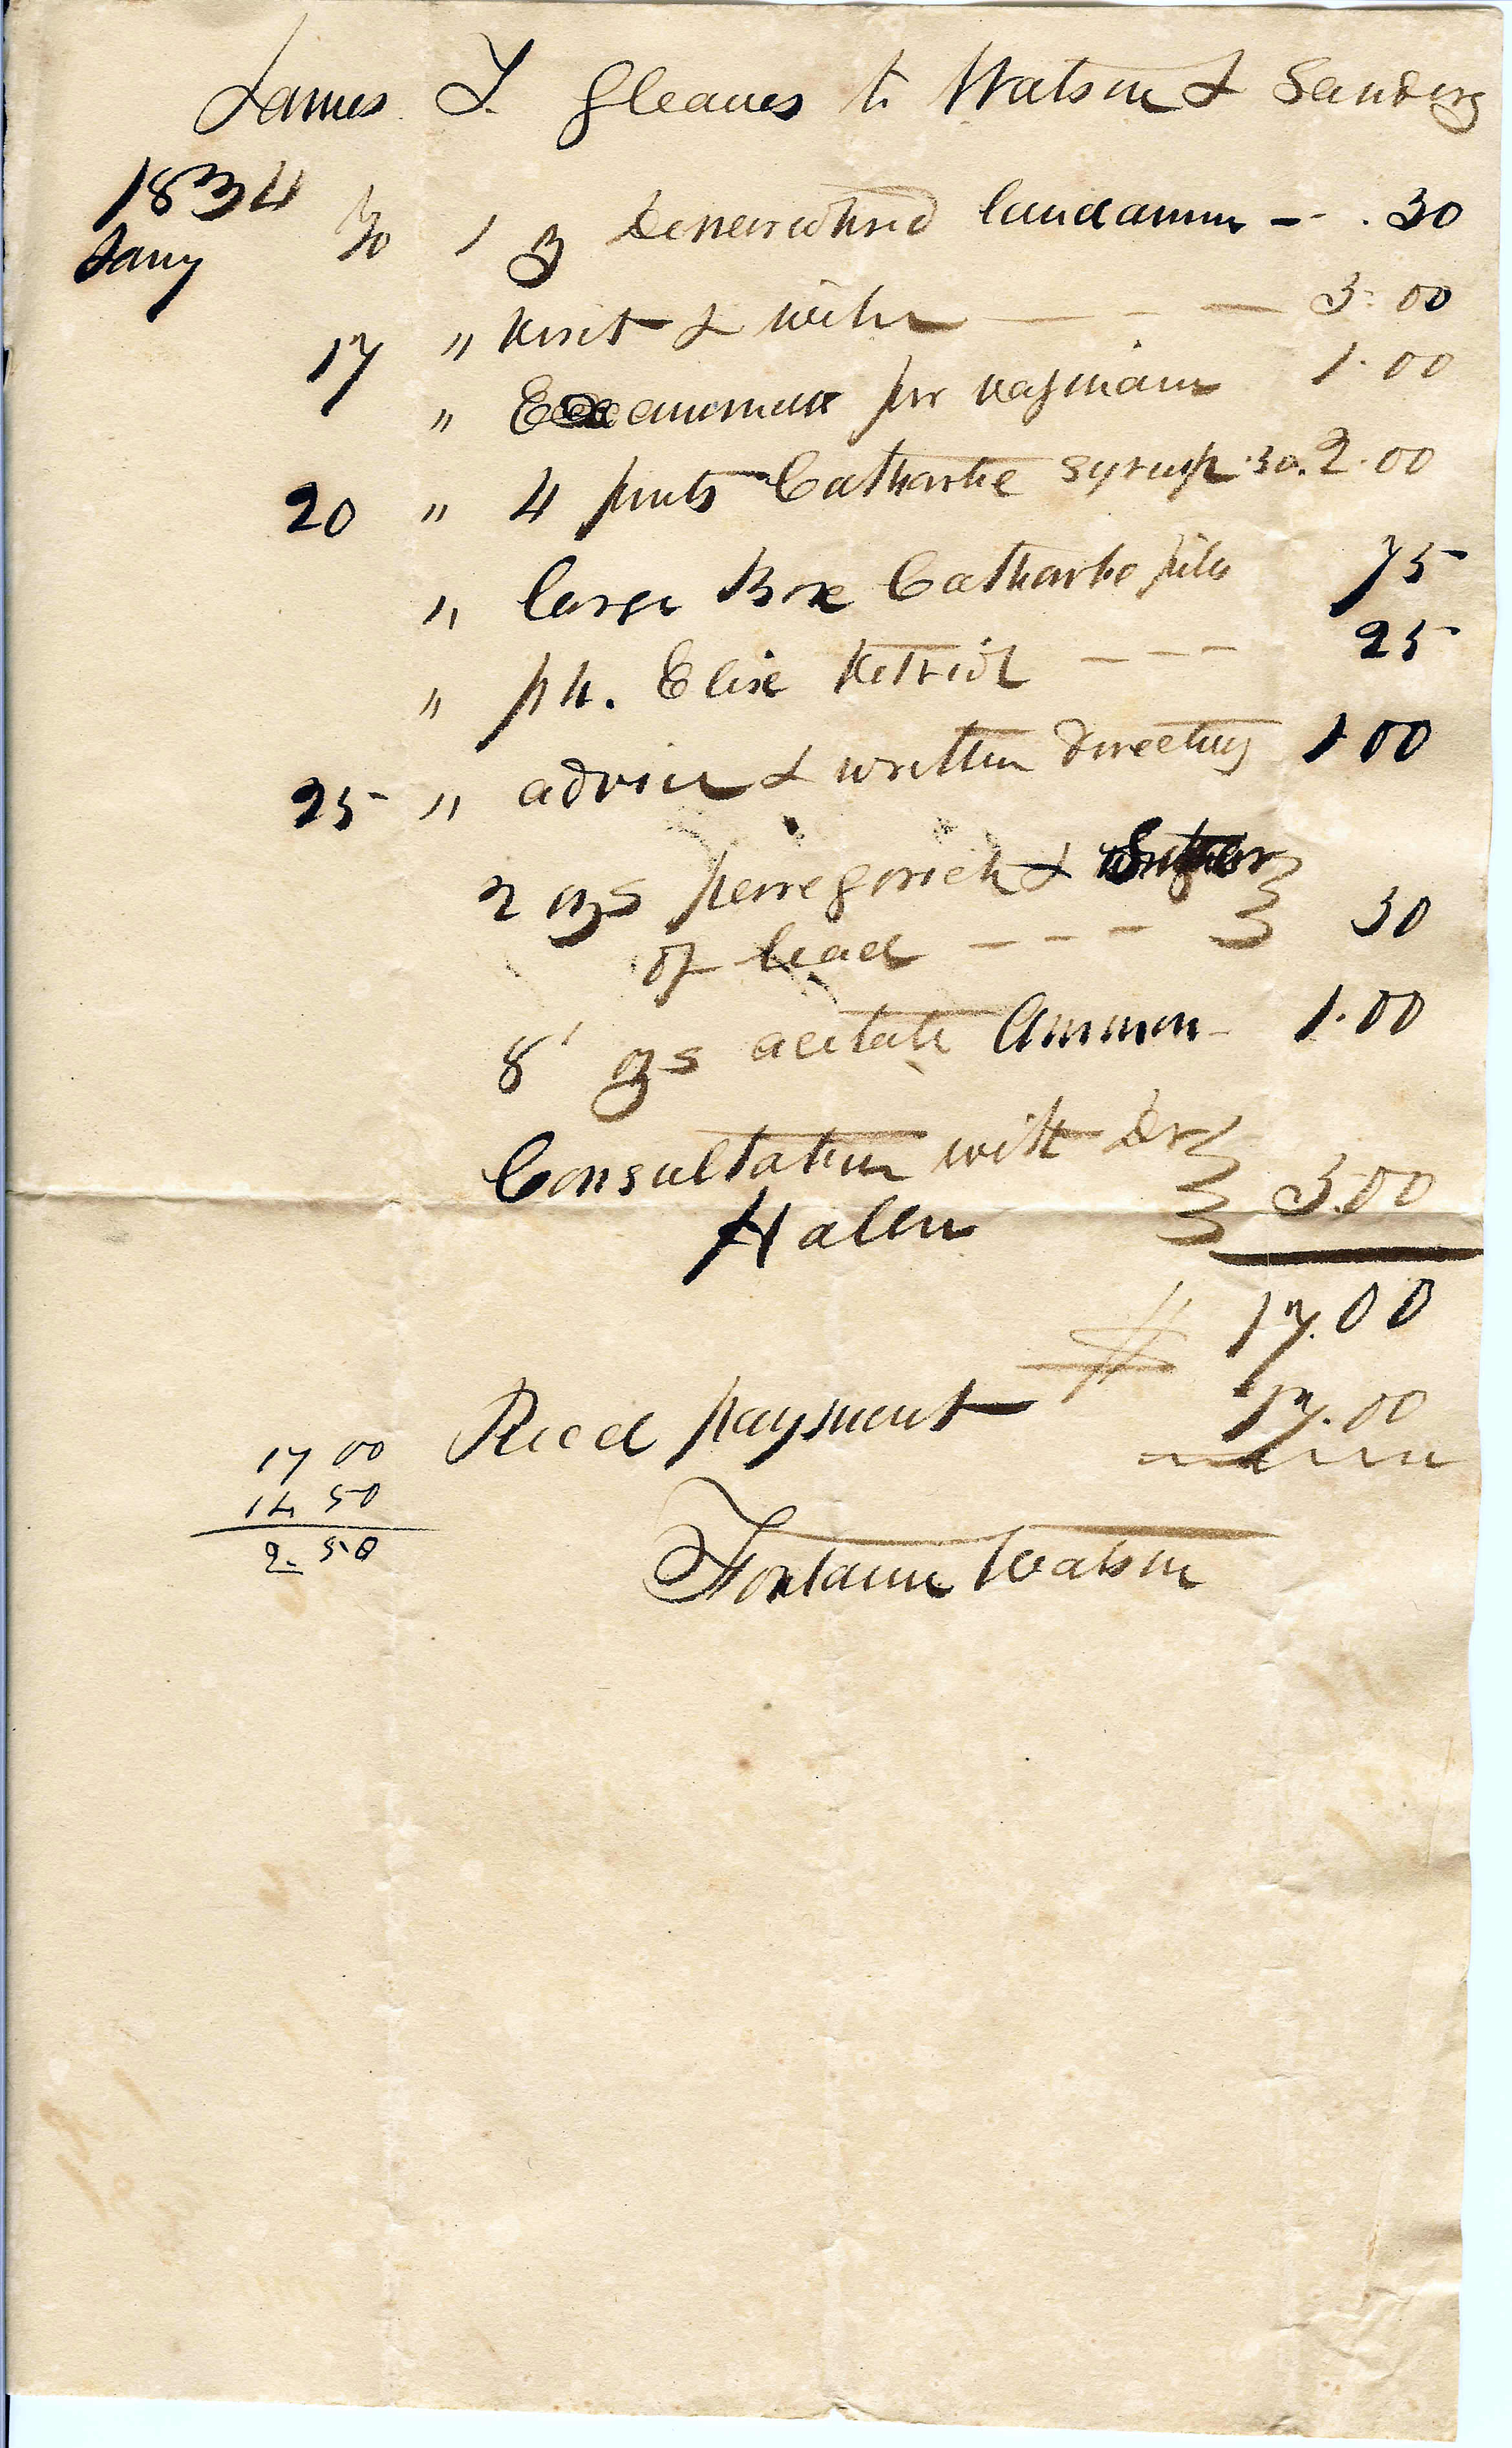 James T. Gleaves to Watson & Sanders
1834
Jany 10 1 ℥ Denarcotised laudanum - - . 50
17 " Visit & with — - — 5.00
" Examination per vaginam 1.00
20 " 4 pints Cathartic Syrup .50. 2.00
" large Box Cathartic pills 75
" ph. Elix Vitriol - - - 25
25 " advice & written directions 1 00
2 ozs perregorick & Sugar
of lead - - - 50
8 ozs acetate Ammon - 1.00
Consultation with Dr
Haller 5.00
$ 17.00
Recd payment 17.00
17 00
14 50
2 50
Fontaine Watson